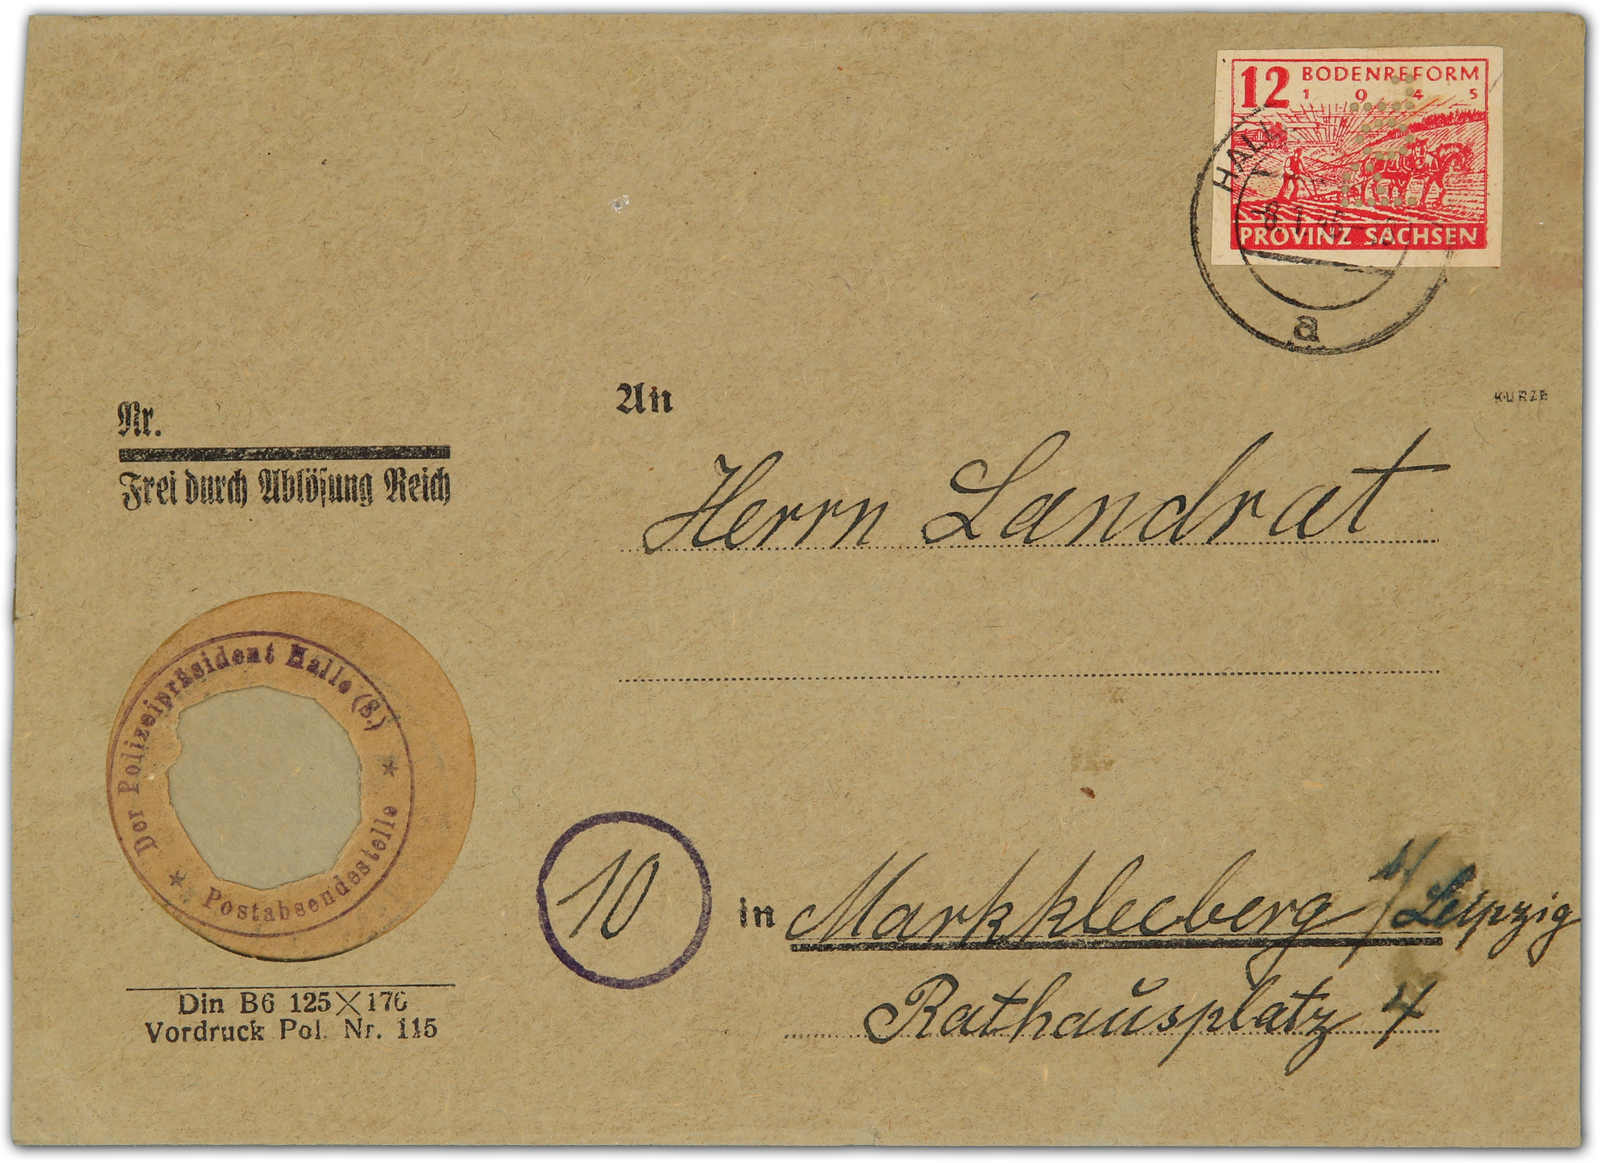 12 BODENREFORM
1 9 4 5
PROVINZ SACHSEN
HALL
a
KURZE
Nr.
Frei durch Ablösung Reich
An
Herrn Landrat
Der Polizeipräsident Halle (S.)
* Postabsendestelle *
10
in Markkleeberg b/Leipzig
Rathausplatz 4
Din B6 125×176
Vordruck Pol. Nr. 115